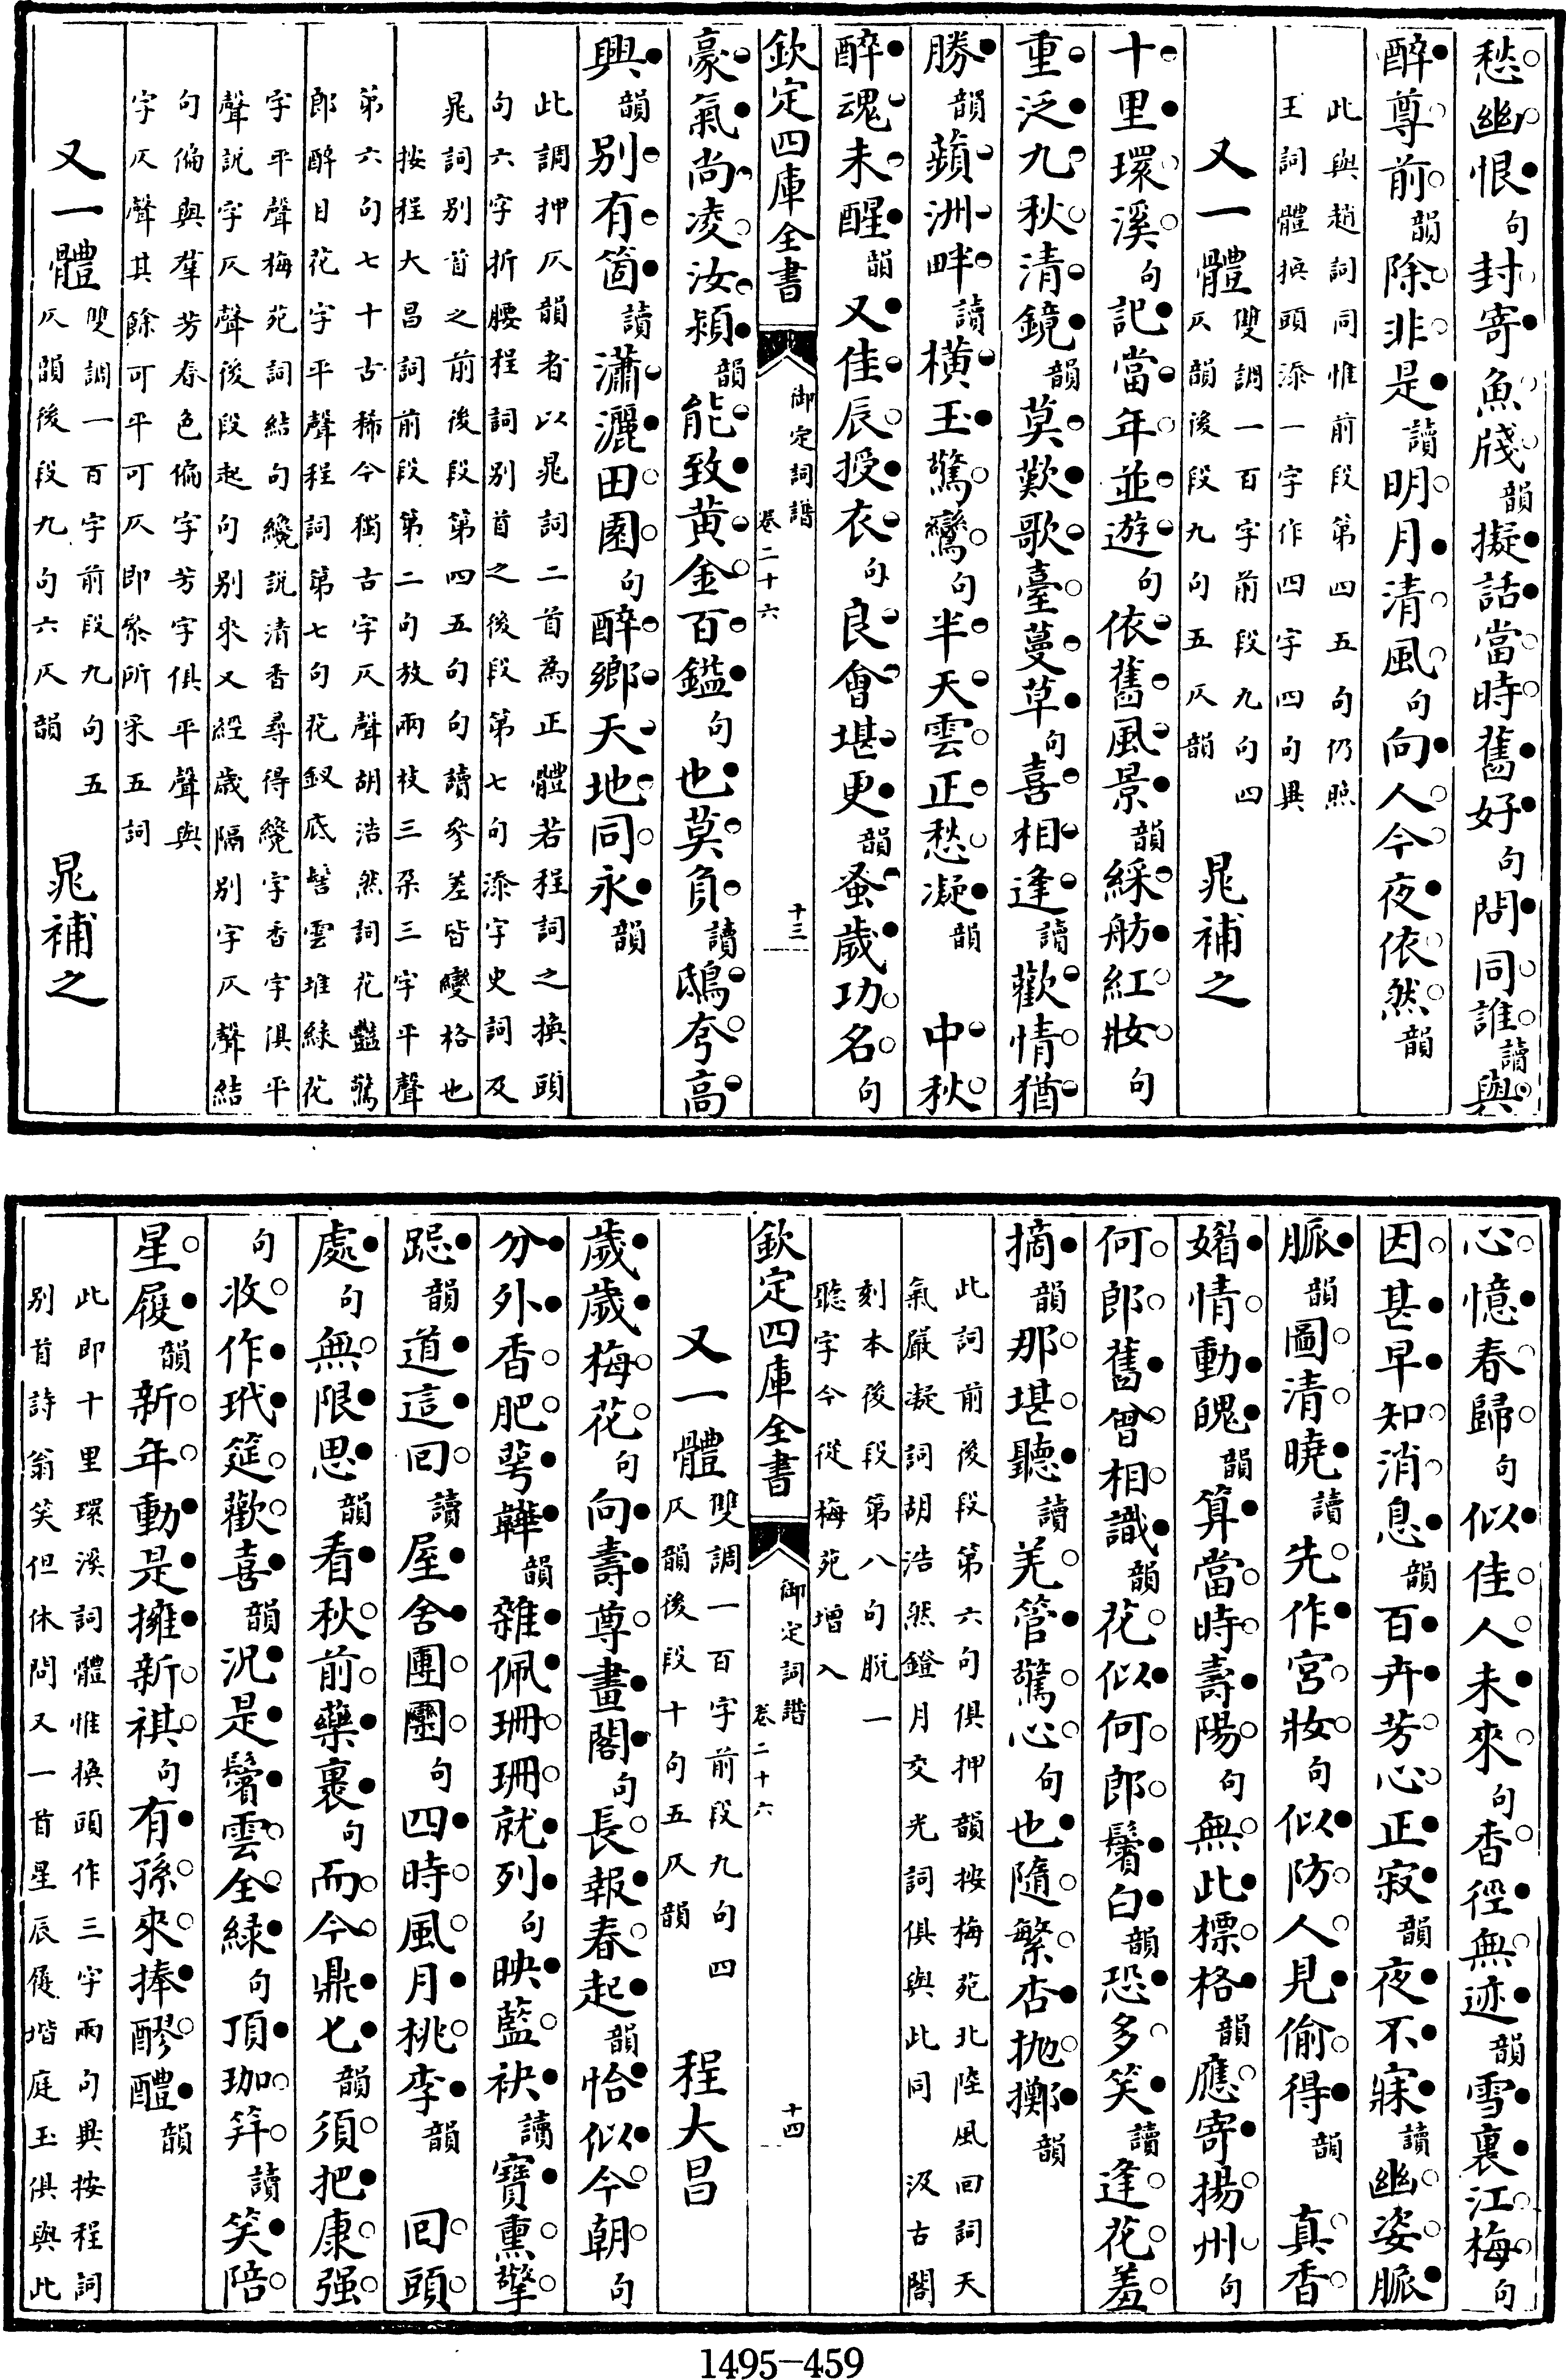 愁幽恨句封寄魚牋韻擬話當時舊好句問同誰讀與
醉尊前韻除非是讀明月清風句向人今夜依然韻
此與趙詞同惟前段第四五句仍照
王詞體換頭添一字作四字四句異
又一體雙調一百字前段九句四
仄韻後段九句五仄韻
晁補之
十里環溪句記當年並遊句依舊風景韻綵舫紅妝句
重泛九秋清鏡韻莫歎歌臺蔓草句喜相逢讀歡情猶
勝韻蘋洲畔讀橫玉驚鸞句半天雲正愁凝韻 中秋
醉魂未醒韻又佳辰授衣句良會堪更韻蚤歲功名句
欽定四庫全書 御定詞譜卷二十六 十三
豪氣尚凌汝潁韻能致黃金百鎰句也莫負讀鴟夸高
興韻別有箇讀瀟灑田園句醉鄉天地同永韻
此調押仄韻者以晁詞二首為正體若程詞之換頭
句六字折腰程詞別首之後段第七句添字史詞及
晁詞別首之前後段第四五句句讀參差皆變格也
按程大昌詞前段第二句放兩枝三朶三字平聲
第六句七十古稀今獨古字仄聲胡浩然詞花豔驚
郎醉目花字平聲程詞第七句花釵底髻雲堆綠花
字平聲梅苑詞結句纔說清香尋得纔字香字俱平
聲說字仄聲後段起句別來又經歲隔別字仄聲結
句偏與羣芳春色偏字芳字俱平聲與
字仄聲其餘可平可仄即叅所采五詞
又一體雙調一百字前段九句五
仄韻後段九句六仄韻
晁補之
心憶春歸句似佳人未來句香徑無迹韻雪裏江梅句
因甚早知消息韻百卉芳心正寂韻夜不寐讀幽姿脈
脈韻圖清曉讀先作宮妝句似防人見偷得韻 真香
媚情動魄韻算當時壽陽句無此標格韻應寄揚州句
何郎舊曾相識韻花似何郎鬢白韻恐多笑讀逢花羞
摘韻那堪聽讀羌管驚心句也隨繁杏拋擲韻
此詞前後段第六句俱押韻按梅苑北陸風回詞天
氣嚴凝詞胡浩然鐙月交光詞俱與此同 汲古閣
刻本後段第八句脫一
聽字今從梅苑增入
欽定四庫全書 御定詞譜卷二十六 十四
又一體雙調一百字前段九句四
仄韻後段十句五仄韻
程大昌
歲歲梅花句向壽尊畫閣句長報春起韻恰似今朝句
分外香肥萼韡韻雜佩珊珊就列句映藍袂讀寶熏擎
跽韻道這回讀屋舍團團句四時風月桃李韻 回頭
處句無限思韻看秋前藥裹句而今鼎匕韻須把康强
句收作玳筵歡喜韻況是鬢雲全綠句頂珈笄讀笑陪
星履韻新年動是擁新祺句有孫來捧醪醴韻
此即十里環溪詞體惟換頭作三字兩句異按程詞
別首詩翁笑但休問又一首星辰履堦庭玉俱與此
1495-459